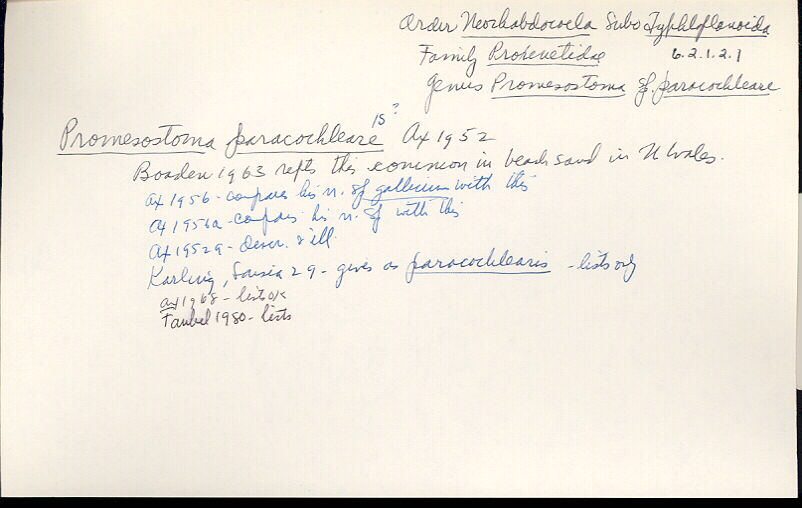 Order Neorhabdocoela Subo Typhloplanoida
Family Proxenetidae 6.2.1.2.1
Genus Promesostoma sp. paracochleare
Promesostoma paracochleare is? Ax 1952
Boaden 1963 repts this common in beach sand in N Wales.
Ax 1956 - compares his n. sp gallicum with this
Ax 1956a - compares his n. sp with this
Ax 1952a - Descr. & ill.
Karling, 29 - gives as paracochlearis - lists only
Ax 1968 - lists
Faubel 1980 - lists